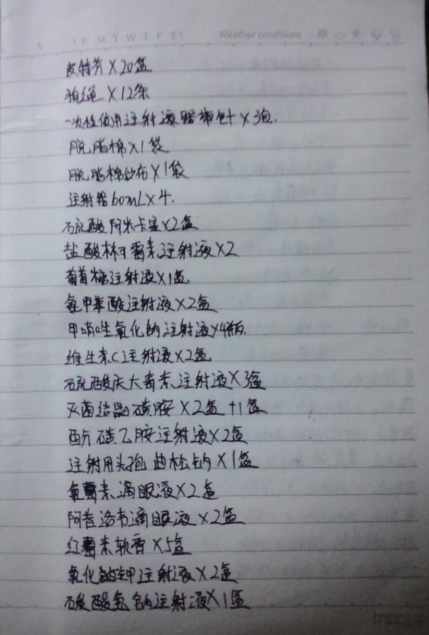 M T W T F S Weather conditions
皮特芬×20盒
狗绳×12条
一次性使用注射液器 ×3袋.
脱脂棉×1袋
脱脂棉纱布×1袋
注射器60mL×4.
硫酸阿米卡星×2盒
盐酸林可霉素注射液×2
葡萄糖注射液×1盒.
氨甲苯酸注射液×2盒
甲硝唑氯化钠注射液×4瓶.
维生素C注射液×2盒
硫酸庆大霉素注射液×3盒
灭菌结晶磺胺×2盒+1盒
酚磺乙胺注射液×2盒
注射用头孢曲松钠×1盒
氯霉素滴眼液×2盒
阿昔洛韦滴眼液×2盒
红霉素软膏×5盒
氯化钾注射液×2盒
碳酸氢钠注射液×1盒